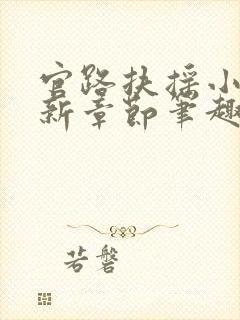 官路扶摇小
新章节笔趣
若磐